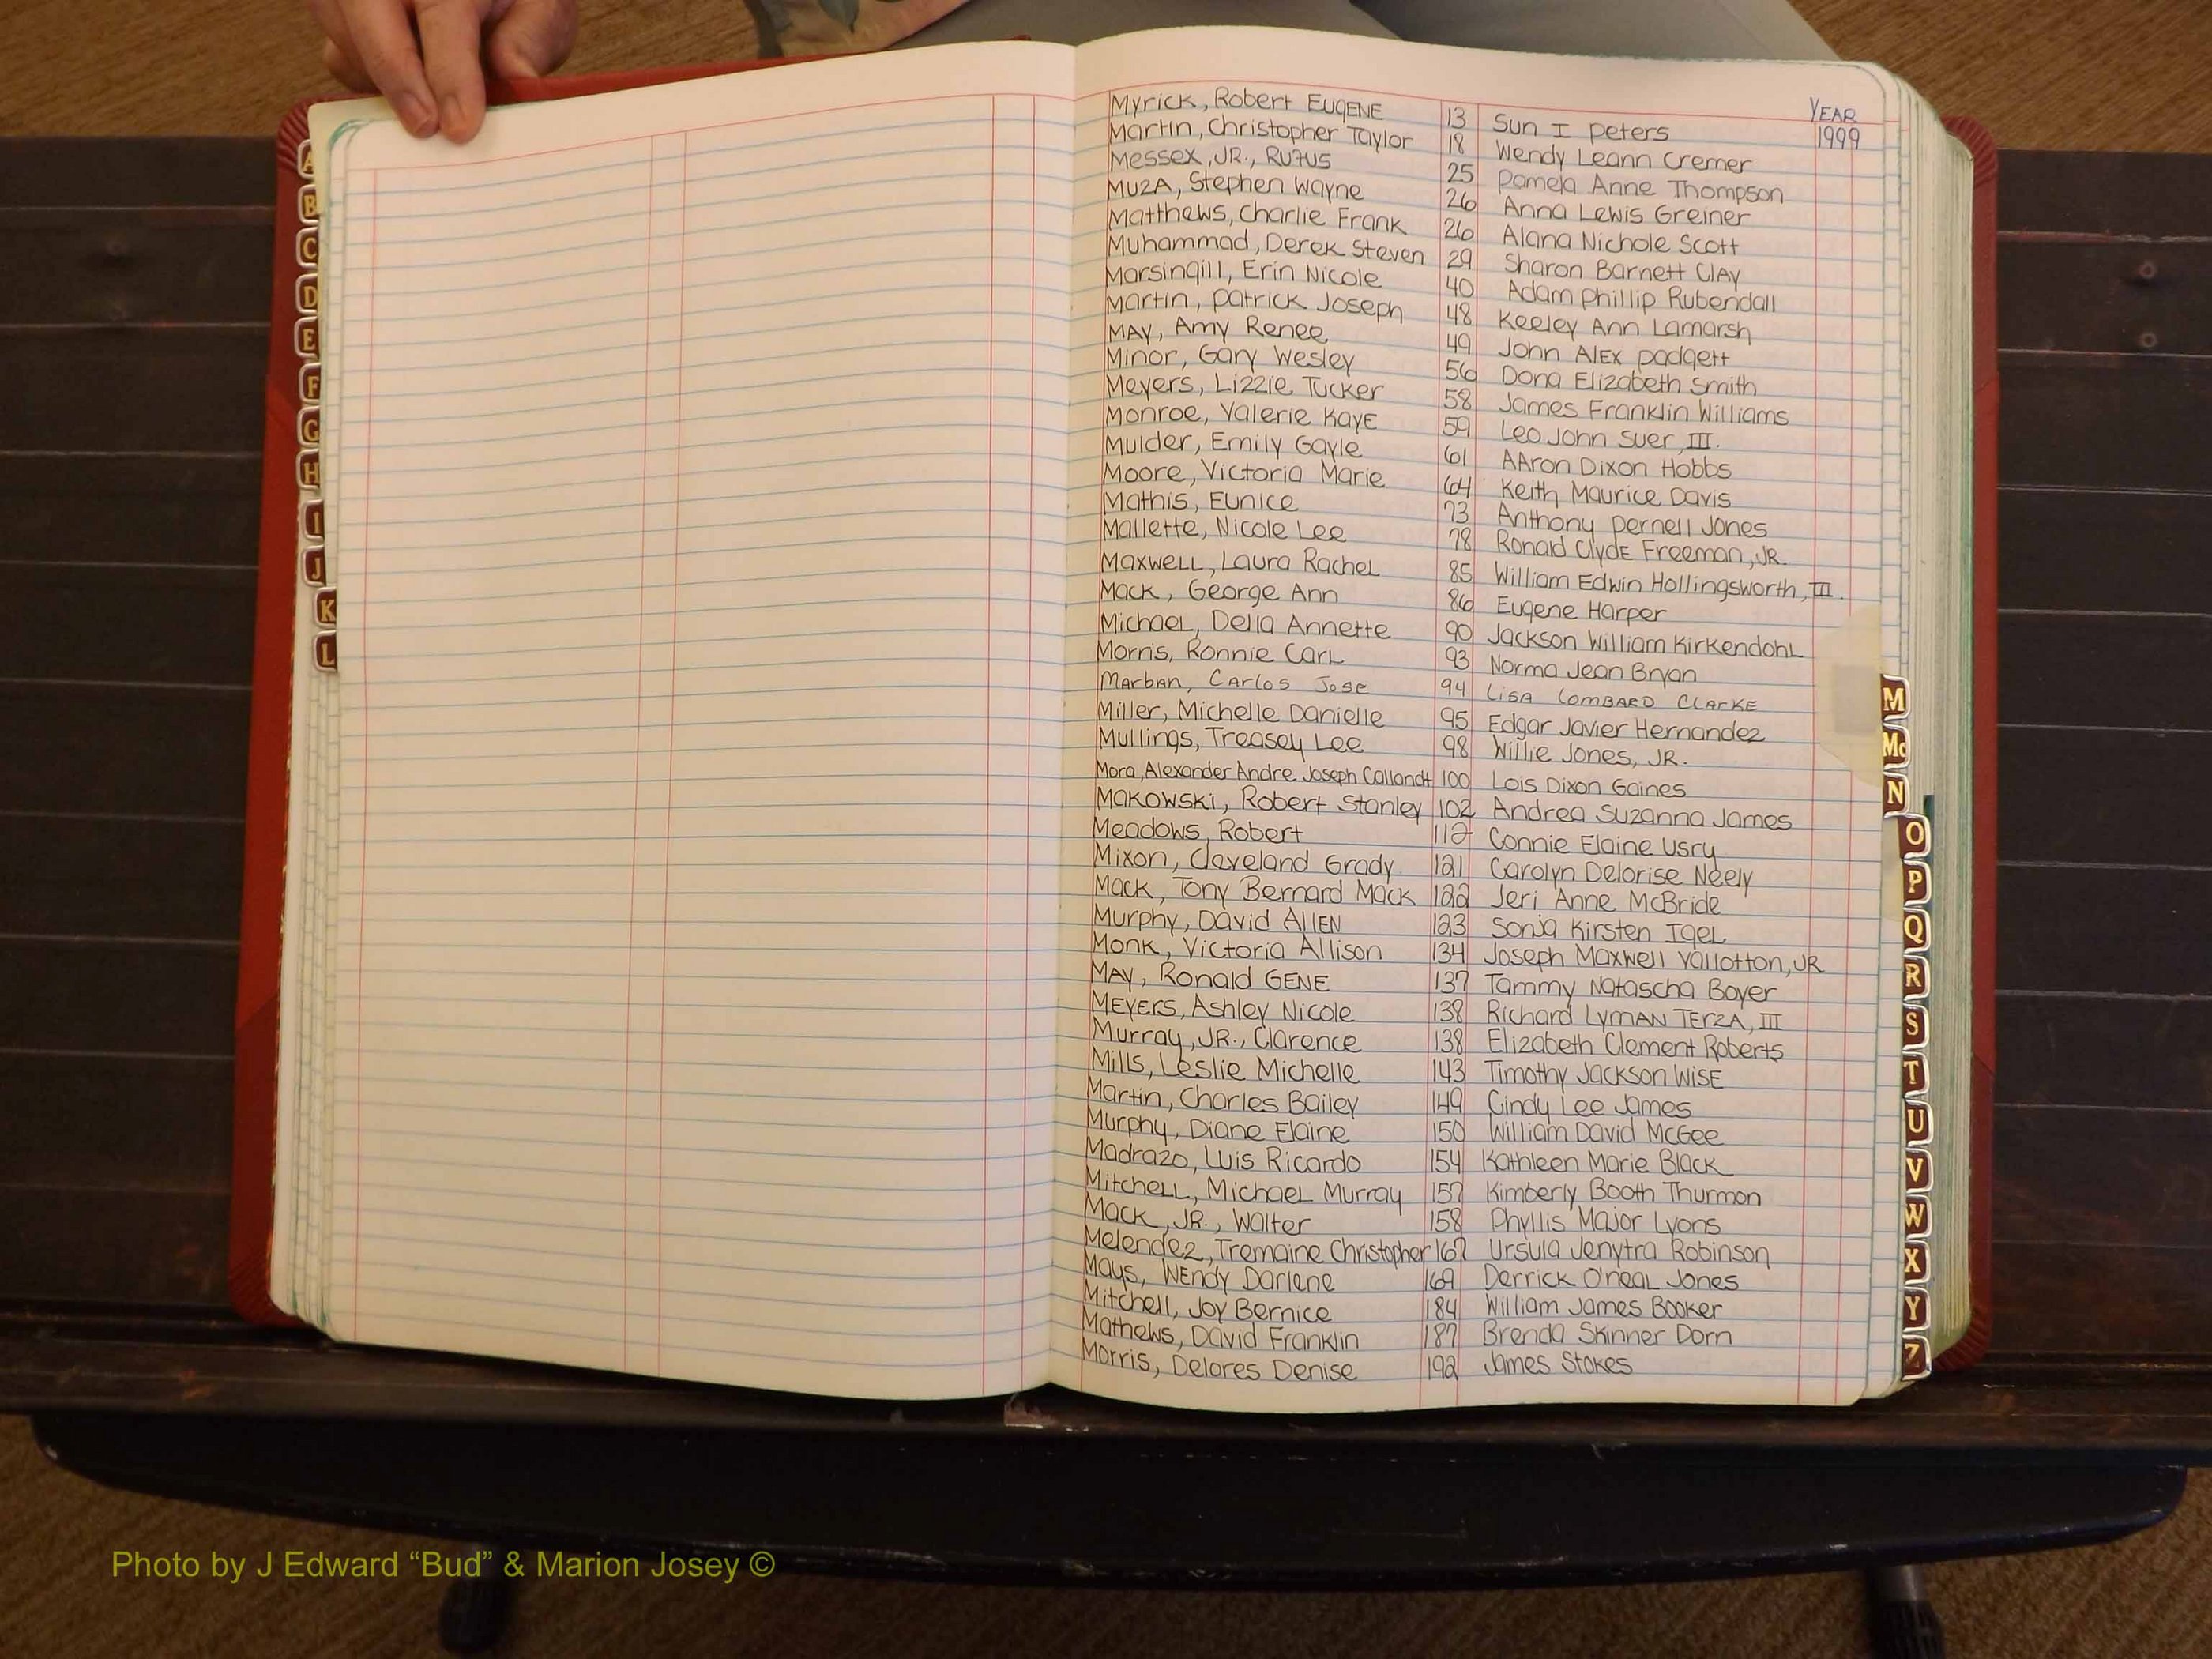 YEAR
Myrick, Robert EUGENE 13 Sun I Peters 1999
Martin, Christopher Taylor 18 Wendy Leann Cremer
Messex, JR., Rufus 25 Pamela Anne Thompson
Muza, Stephen Wayne 26 Anna Lewis Greiner
Matthews, Charlie Frank 26 Alana Nichole Scott
Muhammad, Derek Steven 29 Sharon Barnett Clay
Marsingill, Erin Nicole 40 Adam Phillip Rubendall
Martin, Patrick Joseph 48 Keeley Ann Lamarsh
MAY, Amy Renee, 49 John Alex Padgett
Minor, Gary Wesley 56 Dona Elizabeth Smith
Meyers, Lizzie Tucker 58 James Franklin Williams
Monroe, Valerie Kaye 59 Leo John Suer, III.
Mulder, Emily Gayle 61 AAron Dixon Hobbs
Moore, Victoria Marie 64 Keith Maurice Davis
Mathis, Eunice 73 Anthony Pernell Jones
Mallette, Nicole Lee 78 Ronald Clyde Freeman, JR.
Maxwell, Laura Rachel 85 William Edwin Hollingsworth, III.
Mack, George Ann 86 Eugene Harper
Michael, Della Annette 90 Jackson William Kirkendohl
Morris, Ronnie Carl 93 Norma Jean Bryan
Marban, Carlos Jose 94 Lisa Lombard Clarke
Miller, Michelle Danielle 95 Edgar Javier Hernandez
Mullings, Treasey Lee 98 Willie Jones, JR.
Mora, Alexander Andre Joseph Callandt 100 Lois Dixon Gaines
Makowski, Robert Stanley 102 Andrea Suzanna James
Meadows, Robert 112 Connie Elaine Usry
Mixon, Cleveland Grady 121 Carolyn Delorise Neely
Mack, Tony Bernard Mack 122 Jeri Anne McBride
Murphy, David Allen 123 Sonja Kirsten Igel
Monk, Victoria Allison 134 Joseph Maxwell Vallotton, JR
MAY, Ronald GENE 137 Tammy Natascha Boyer
MEYERS, Ashley Nicole 138 Richard Lyman Terza, III
Murray, JR., Clarence 138 Elizabeth Clement Roberts
Mills, Leslie Michelle 143 Timothy Jackson Wise
Martin, Charles Bailey 149 Cindy Lee James
Murphy, Diane Elaine 150 William David McGee
Madrazo, Luis Ricardo 154 Kathleen Marie Black
Mitchell, Michael Murray 157 Kimberly Booth Thurmon
Mack, JR., Walter 158 Phyllis Major Lyons
Melendez, Tremaine Christopher 167 Ursula Jenytra Robinson
Mays, Wendy Darlene 169 Derrick O'neal Jones
Mitchell, Joy Bernice 184 William James Booker
Mathews, David Franklin 187 Brenda Skinner Dorn
Morris, Delores Denise 192 James Stokes
A
B
C
D
E
F
G
H
I
J
K
L
M
Mc
N
O
P
Q
R
S
T
U
V
W
X
Y
Z
Photo by J Edward “Bud” & Marion Josey ©